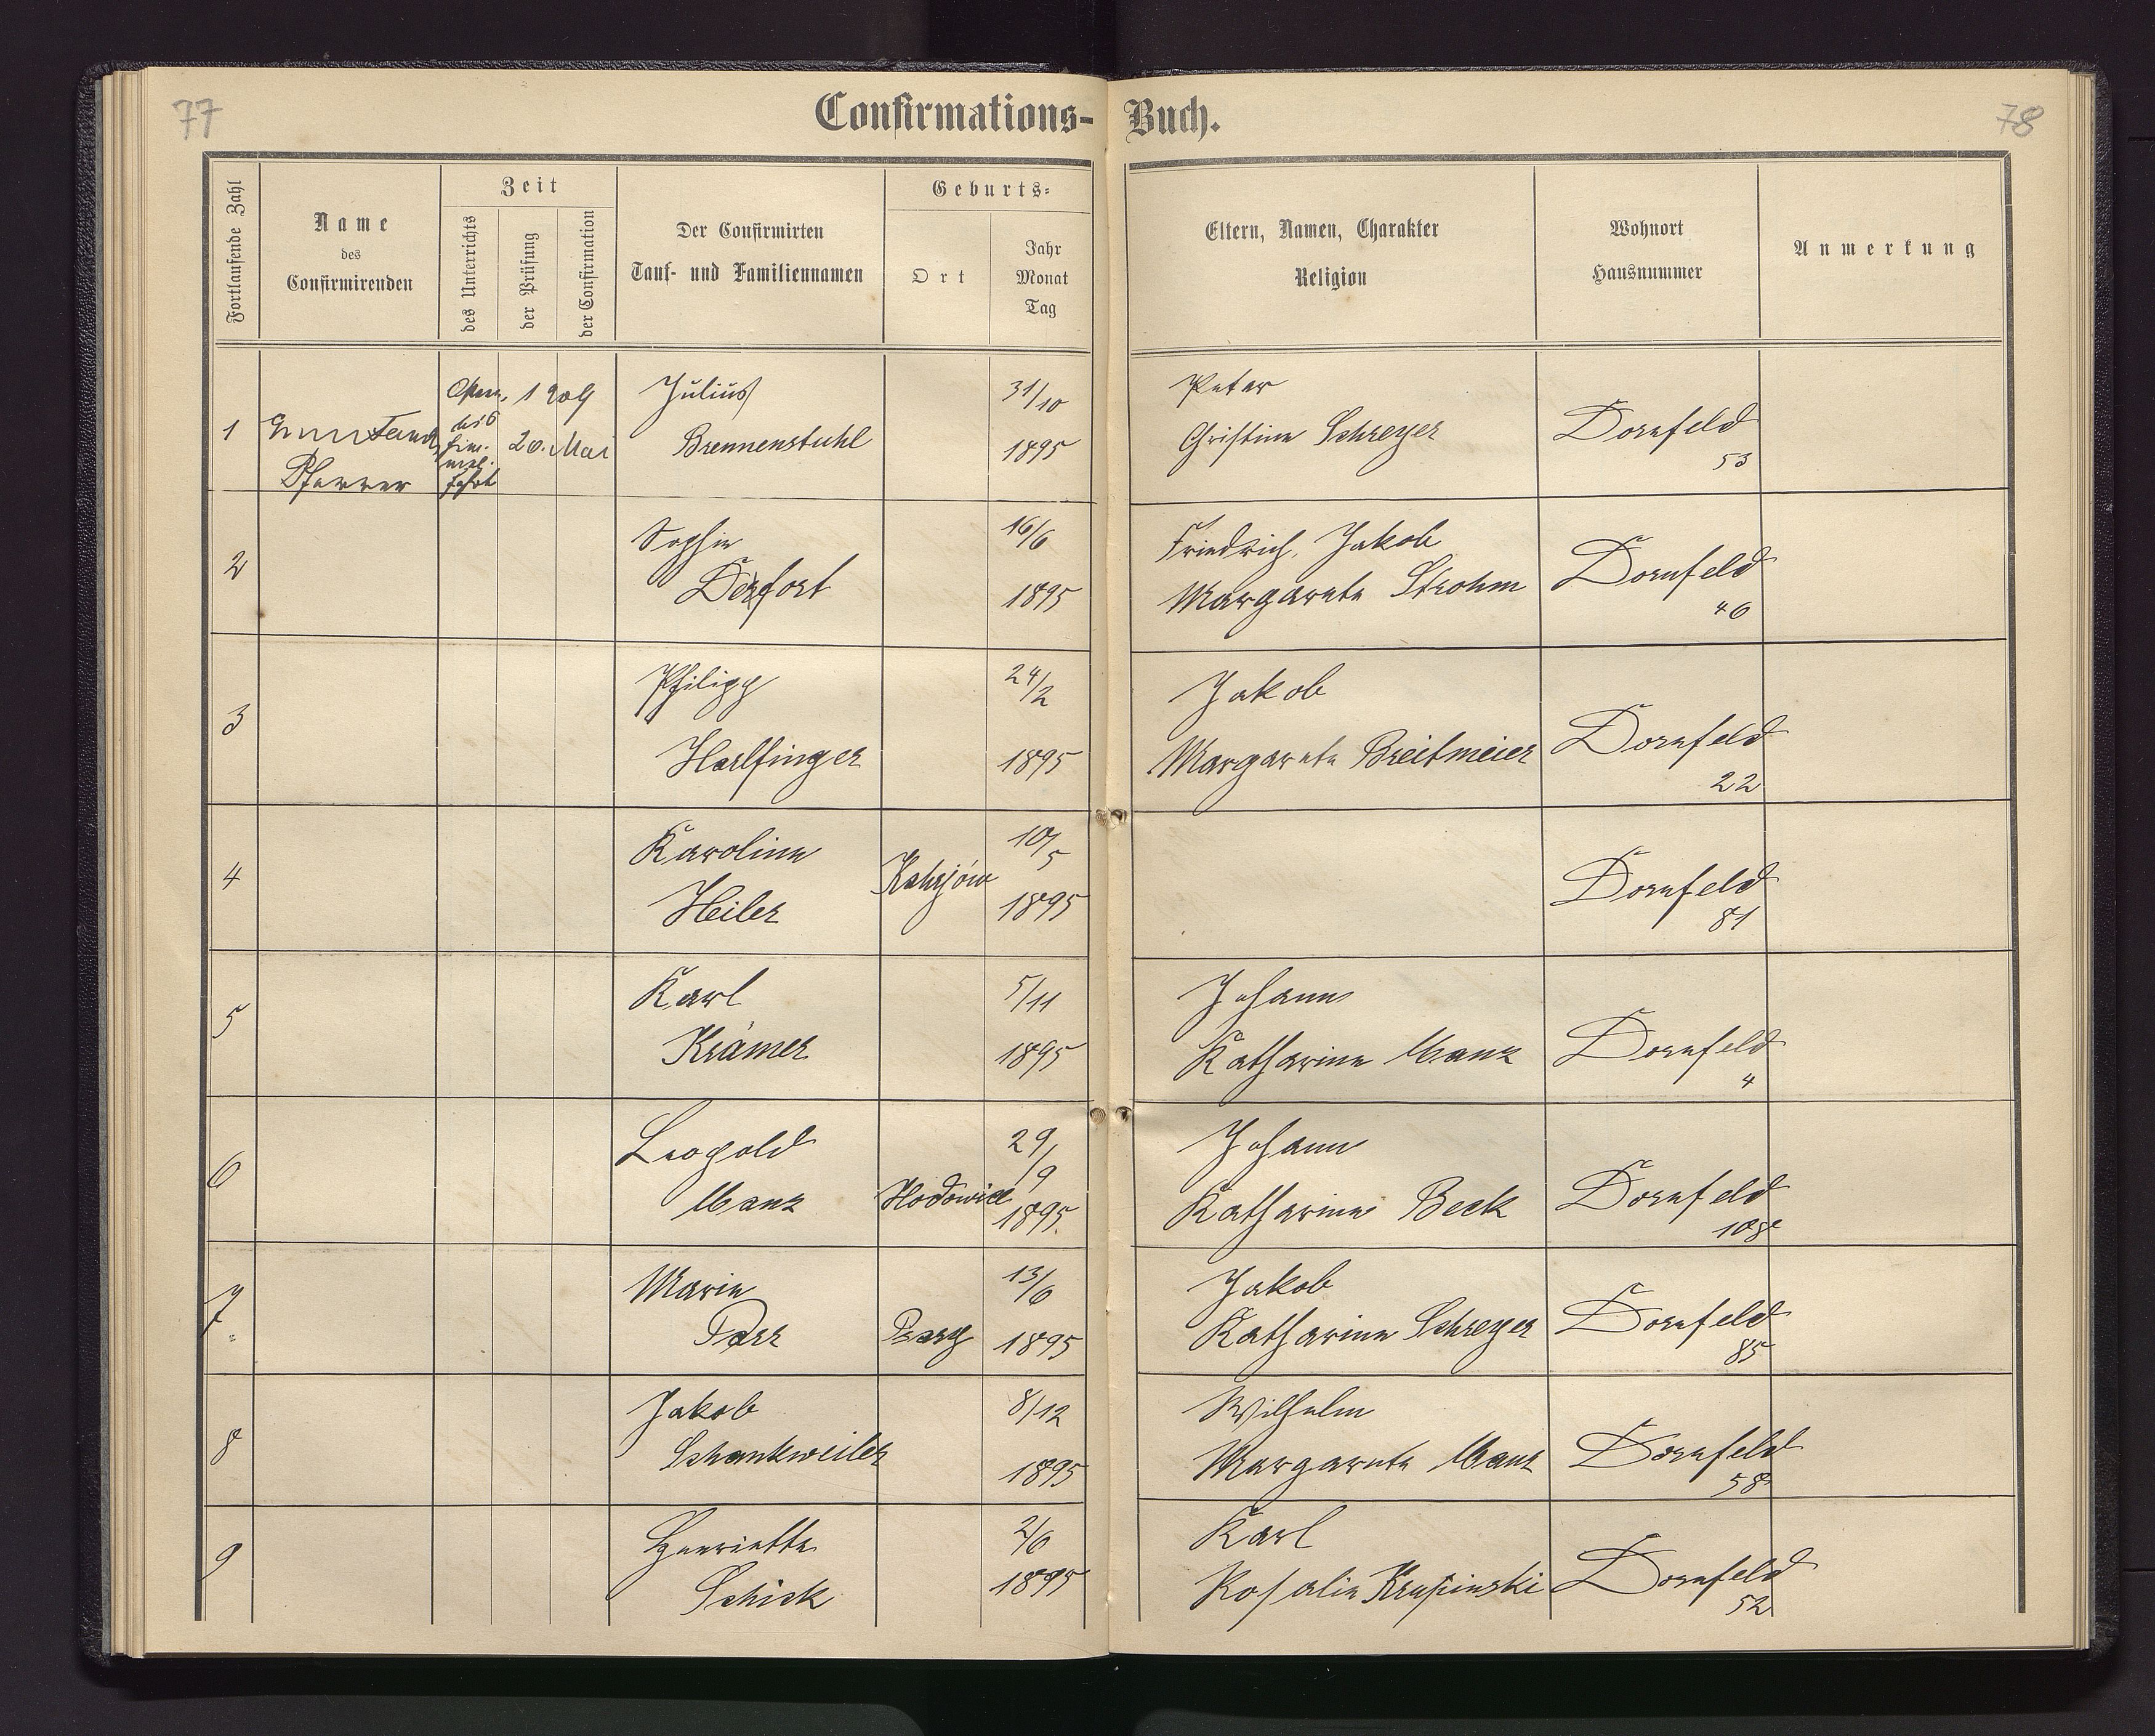 77
78
Confirmations-Buch.
Fortlaufende Zahl
Name
des
Confirmirenden
Zeit
des Unterrichts
der Prüfung
der Confirmation
Der Confirmirten
Tauf- und Familiennamen
Geburts-
Ort
Jahr
Monat
Tag
Eltern, Namen, Charakter
Religion
Wohnort
Hausnummer
Anmerkung
1
Pfarrer
bis
Him-
mel-
fahrt
1909
20. Mai
Julius
Brennenstuhl
31/10
1895
Peter
Christine Schreyer
Dornfeld
53
2
Sophie
16/6
1895
Friedrich, Jakob
Margarete Strohm
Dornfeld
46
3
Philipp
Harlfinger
24/2
1895
Jakob
Margarete Breitmeier
Dornfeld
22
4
Karoline
Heiler
10/5
1895
Dornfeld
81
5
Karl
Krämer
5/11
1895
Johann
Katharine Manz
Dornfeld
4
6
Leopold
Manz
Hodowice
29/9
1895.
Johann
Katharine Beck
Dornfeld
108
7
Marie
Parr
13/6
1895
Jakob
Katharine Schreyer
Dornfeld
85
8
Jakob
Schankweiler
8/12
1895
Wilhelm
Margarete Manz
Dornfeld
58
9
Henriette
Schick
2/6
1895
Karl
Rosalie Krupinski
Dornfeld
52